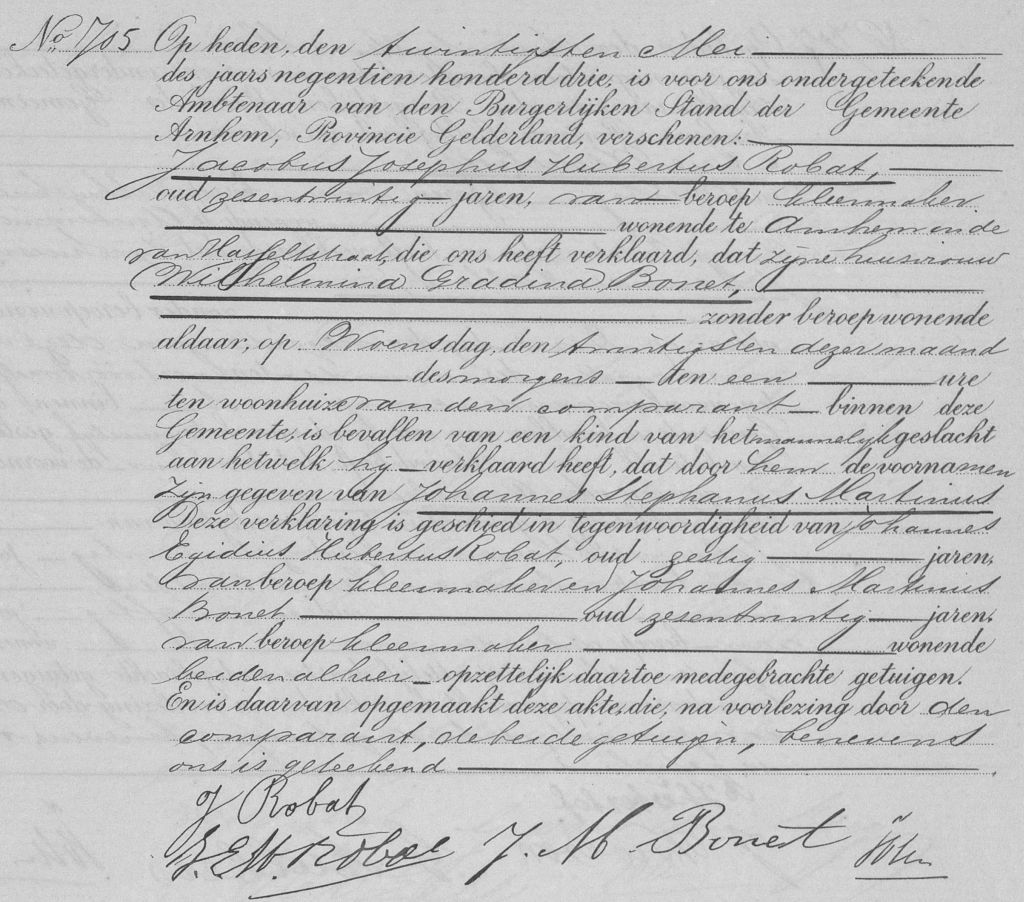 No 705 Op heden, den twintigsten Mei
des jaars negentien honderd drie, is voor ons ondergeteekende
Ambtenaar van den Burgerlijken Stand der Gemeente
Arnhem, Provincie Gelderland, verschenen:
Jacobus Josephus Hubertus Robat,
oud zesentwintig jaren, van beroep kleermaker
wonende te Arnhem in de
van Hasseltstraat, die ons heeft verklaard, dat zijne huisvrouw
Wilhelmina Gradina Bonet,
zonder beroep wonende
aldaar, op Woensdag, den twintigsten dezer maand
des morgens ten een ure
ten woonhuize van den comparant binnen deze
Gemeente, is bevallen van een kind van het mannelijk geslacht
aan hetwelk hij verklaard heeft, dat door hem de voornamen
zijn gegeven van Johannes Stephanus Martinus
Deze verklaring is geschied in tegenwoordigheid van Johannes
Egidius Hubertus Robat, oud zestig jaren,
van beroep kleermaker en Johannes Martinus
Bonet, oud zesentwintig jaren,
van beroep kleermaker wonende
beiden alhier opzettelijk daartoe medegebrachte getuigen.
En is daarvan opgemaakt deze akte, die, na voorlezing door den
comparant, de beide getuigen, benevens
ons is geteekend
J Robat
J. E. H. Robat J. M. Bonet